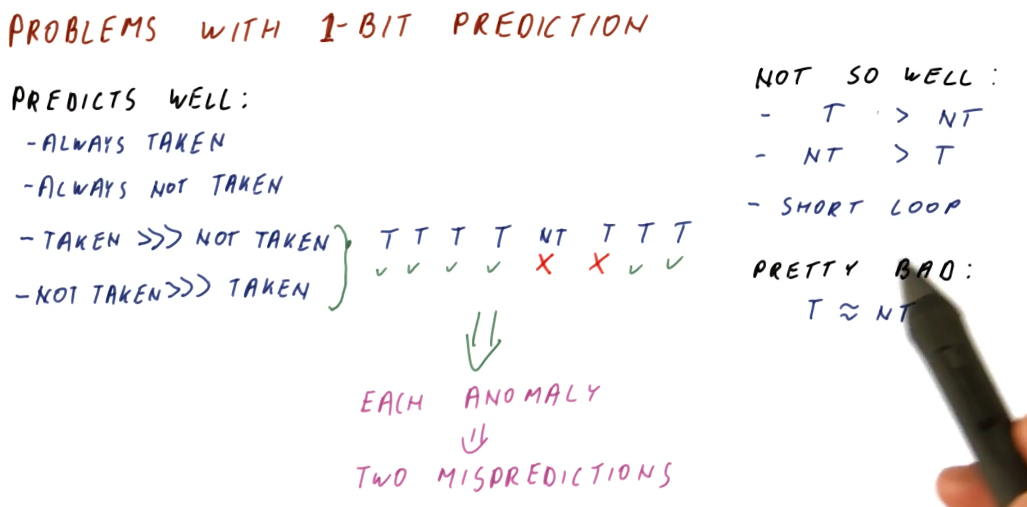 PROBLEMS WITH 1-BIT PREDICTION
PREDICTS WELL:
- ALWAYS TAKEN
- ALWAYS NOT TAKEN
- TAKEN >>> NOT TAKEN
- NOT TAKEN >>> TAKEN
T T T T NT T T T
✓ ✓ ✓ ✓ X X ✓ ✓
EACH ANOMALY
⇓
TWO MISPREDICTIONS
NOT SO WELL:
- T > NT
- NT > T
- SHORT LOOP
PRETTY BAD:
T ≈ NT